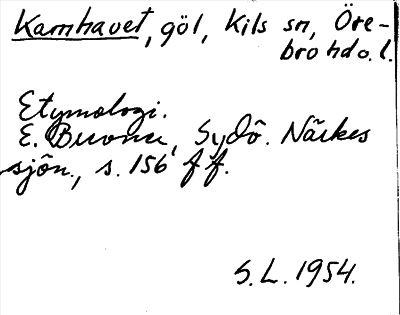 Kamhavet, göl, Kils sn, Öre-
bro hd o. l.
Etymologi.
E. Brevner, Sydö. Närkes
sjön., s. 156 ff.
S. L. 1954.